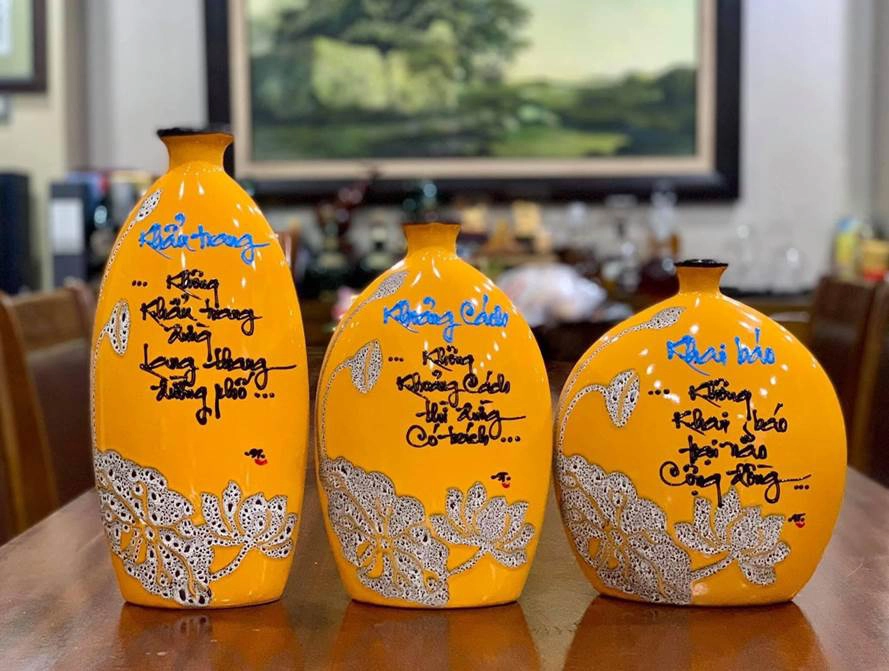 Khẩu trang
... Không
Khẩu trang
đừng
Lang thang
đường phố ...
Khoảng Cách
... Không
Khoảng Cách
thì đừng
Có trách ...
Khai báo
... Không
Khai báo
tại não
Cộng đồng ...